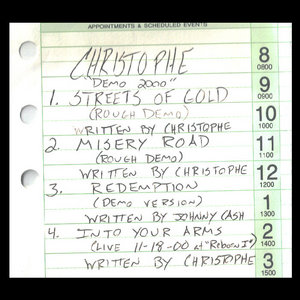 APPOINTMENTS & SCHEDULED EVENTS
CHRISTOPHE
"DEMO 2000"
1. STREETS OF GOLD
(ROUGH DEMO)
WRITTEN BY CHRISTOPHE
2. MISERY ROAD
(ROUGH DEMO)
WRITTEN BY CHRISTOPHE
3. REDEMPTION
(DEMO VERSION)
WRITTEN BY JOHNNY CASH
4. INTO YOUR ARMS
(LIVE 11-18-00 AT "Reborn I")
WRITTEN BY CHRISTOPHE
8
0800
9
0900
10
1000
11
1100
12
1200
1
1300
2
1400
3
1500